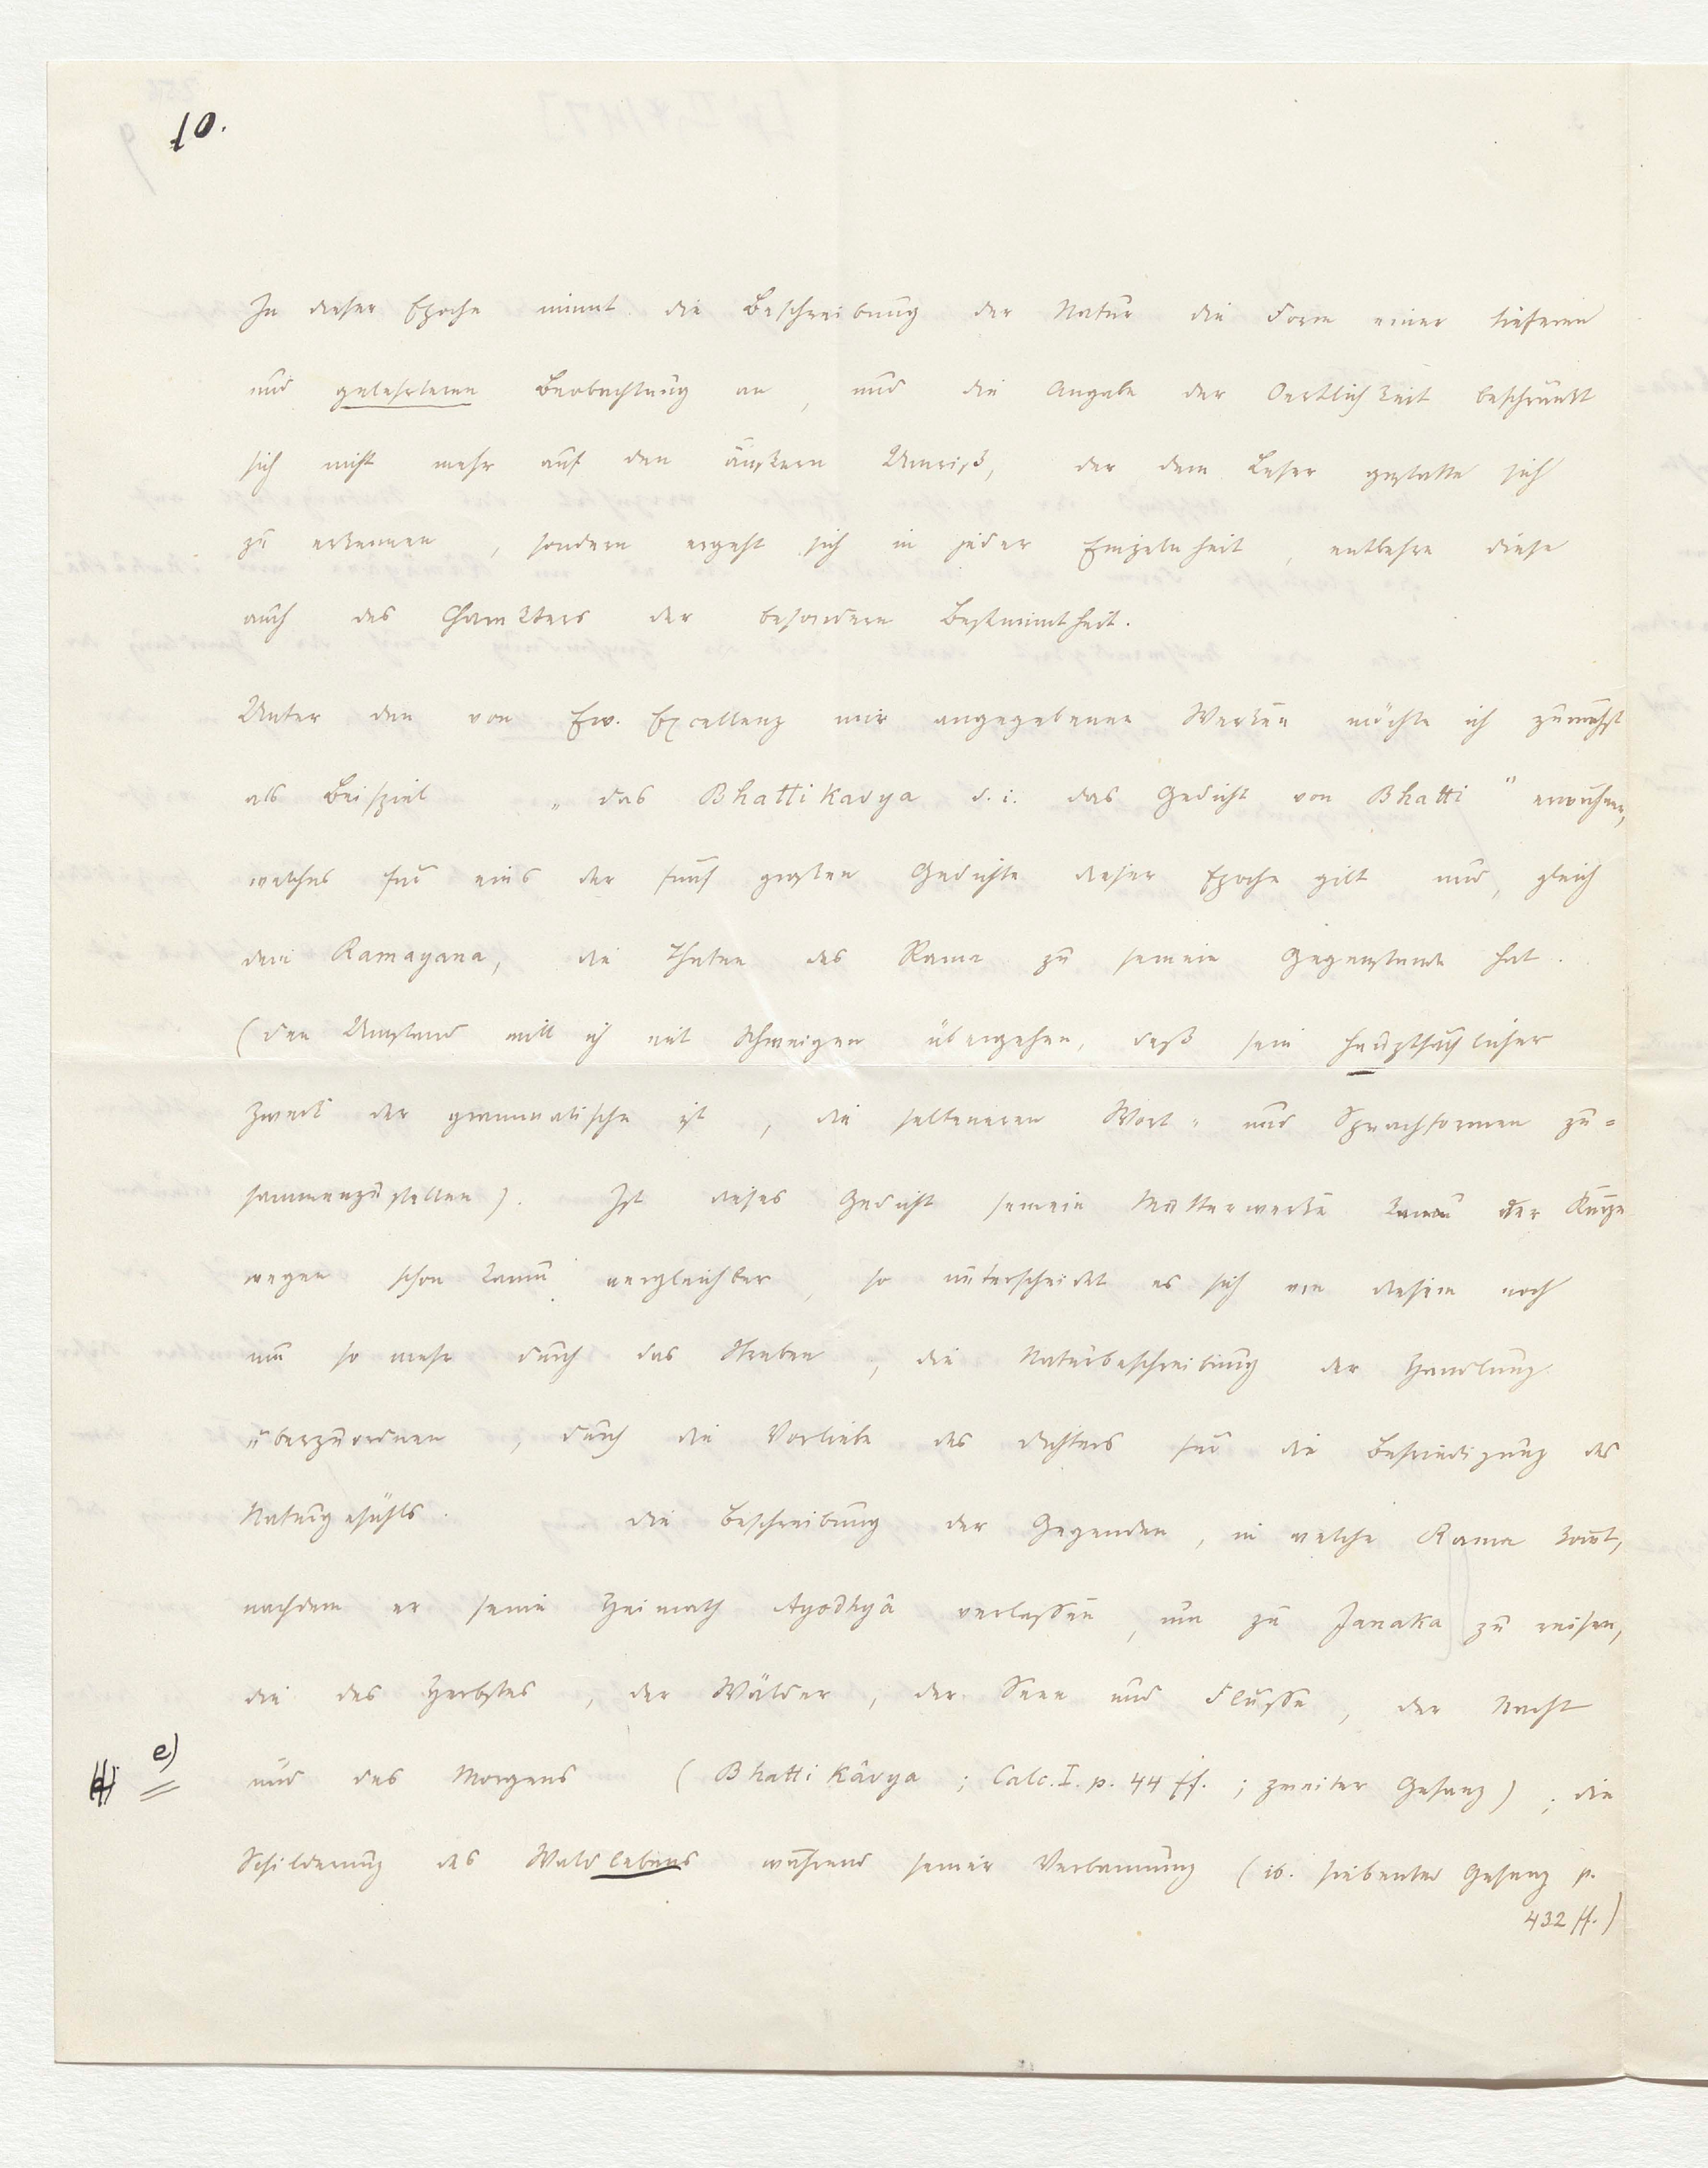 10.
In dieser Epoche nimmt die Beschreibung der Natur die Form einer tieferen
und gelehrteren Beobachtung an, und die Angabe der Oertlichkeit beschränkt
sich nicht mehr auf den äußern Umriß, der dem Leser gestatte sich
zu erkennen, sondern ergeht sich in jeder Einzelnheit, entbehre diese
auch des Charakters der besondern Bestimmtheit.
Unter den von Ew. Excellenz mir angegebenen Werken möchte ich zunächst
als Beispiel „das Bhattikavya d. i. das Gedicht von Bhatti" erwähnen,
welches für eins der fünf großen Gedichte dieser Epoche gilt und, gleich
dem Ramayana, die Thaten des Rama zu seinem Gegenstande hat.
(den Umstand will ich mit Schweigen übergehen, daß sein hauptsächlicher
Zweck der grammatische ist, die selteneren Wort- und Sprachformen zu=
sammenzustellen). Ist dieses Gedicht seinem Mutterwerke der Kürze
wegen schon kaum vergleichbar, so unterscheidet es sich von diesem noch
um so mehr durch das Streben, die Naturbeschreibung der Handlung
überzuordnen, durch die Vorliebe des Dichters für die Befriedigung des
Naturgefühls. die Beschreibung der Gegenden, in welche Rama komt,
nachdem er seine Heimath Ayodhyâ verlassen, um zu Janaka zu reisen,
die des Herbstes, der Wälder, der Seen und Flüsse, der Nacht
e) und des Morgens (Bhattikâvya; Calc. I. p. 44 ff.; zweiter Gesang); die
Schilderung des Waldlebens während seiner Verbannung (ib. siebenter Gesang p.
432 ff.)